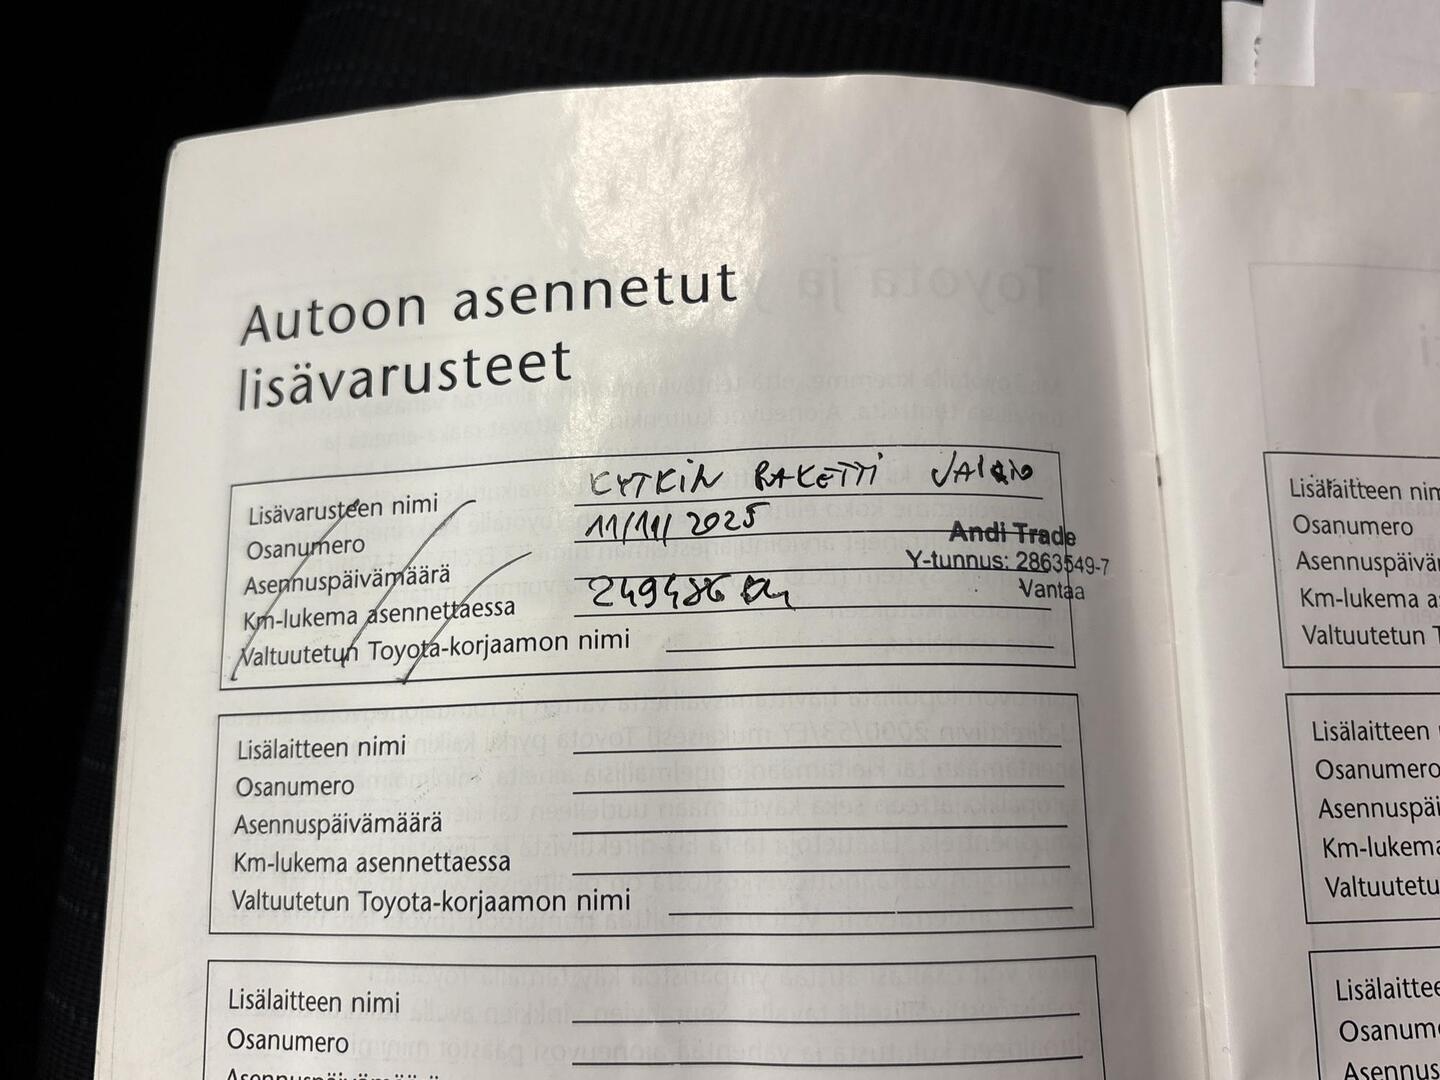 Autoon asennetut
lisävarusteet
Lisävarusteen nimi KYTKIN PAKETTI
Osanumero 11/11/2025
Andi Trade
Asennuspäivämäärä
Y-tunnus: 2863549-7
Km-lukema asennettaessa 249486 km
Vantaa
Valtuutetun Toyota-korjaamon nimi
Lisälaitteen nimi
Osanumero
Asennuspäivämäärä
Km-lukema asennettaessa
Valtuutetun Toyota-korjaamon nimi
Lisälaitteen nimi
Osanumero
Asennuspäivämäärä
Lisälaitteen nim
Osanumero
Asennuspäivä
Km-lukema a
Valtuutetun T
Lisälaitteen
Osanumero
Asennuspäi
Km-lukema
Valtuutetu
Lisälaittee
Osanum
Asennus